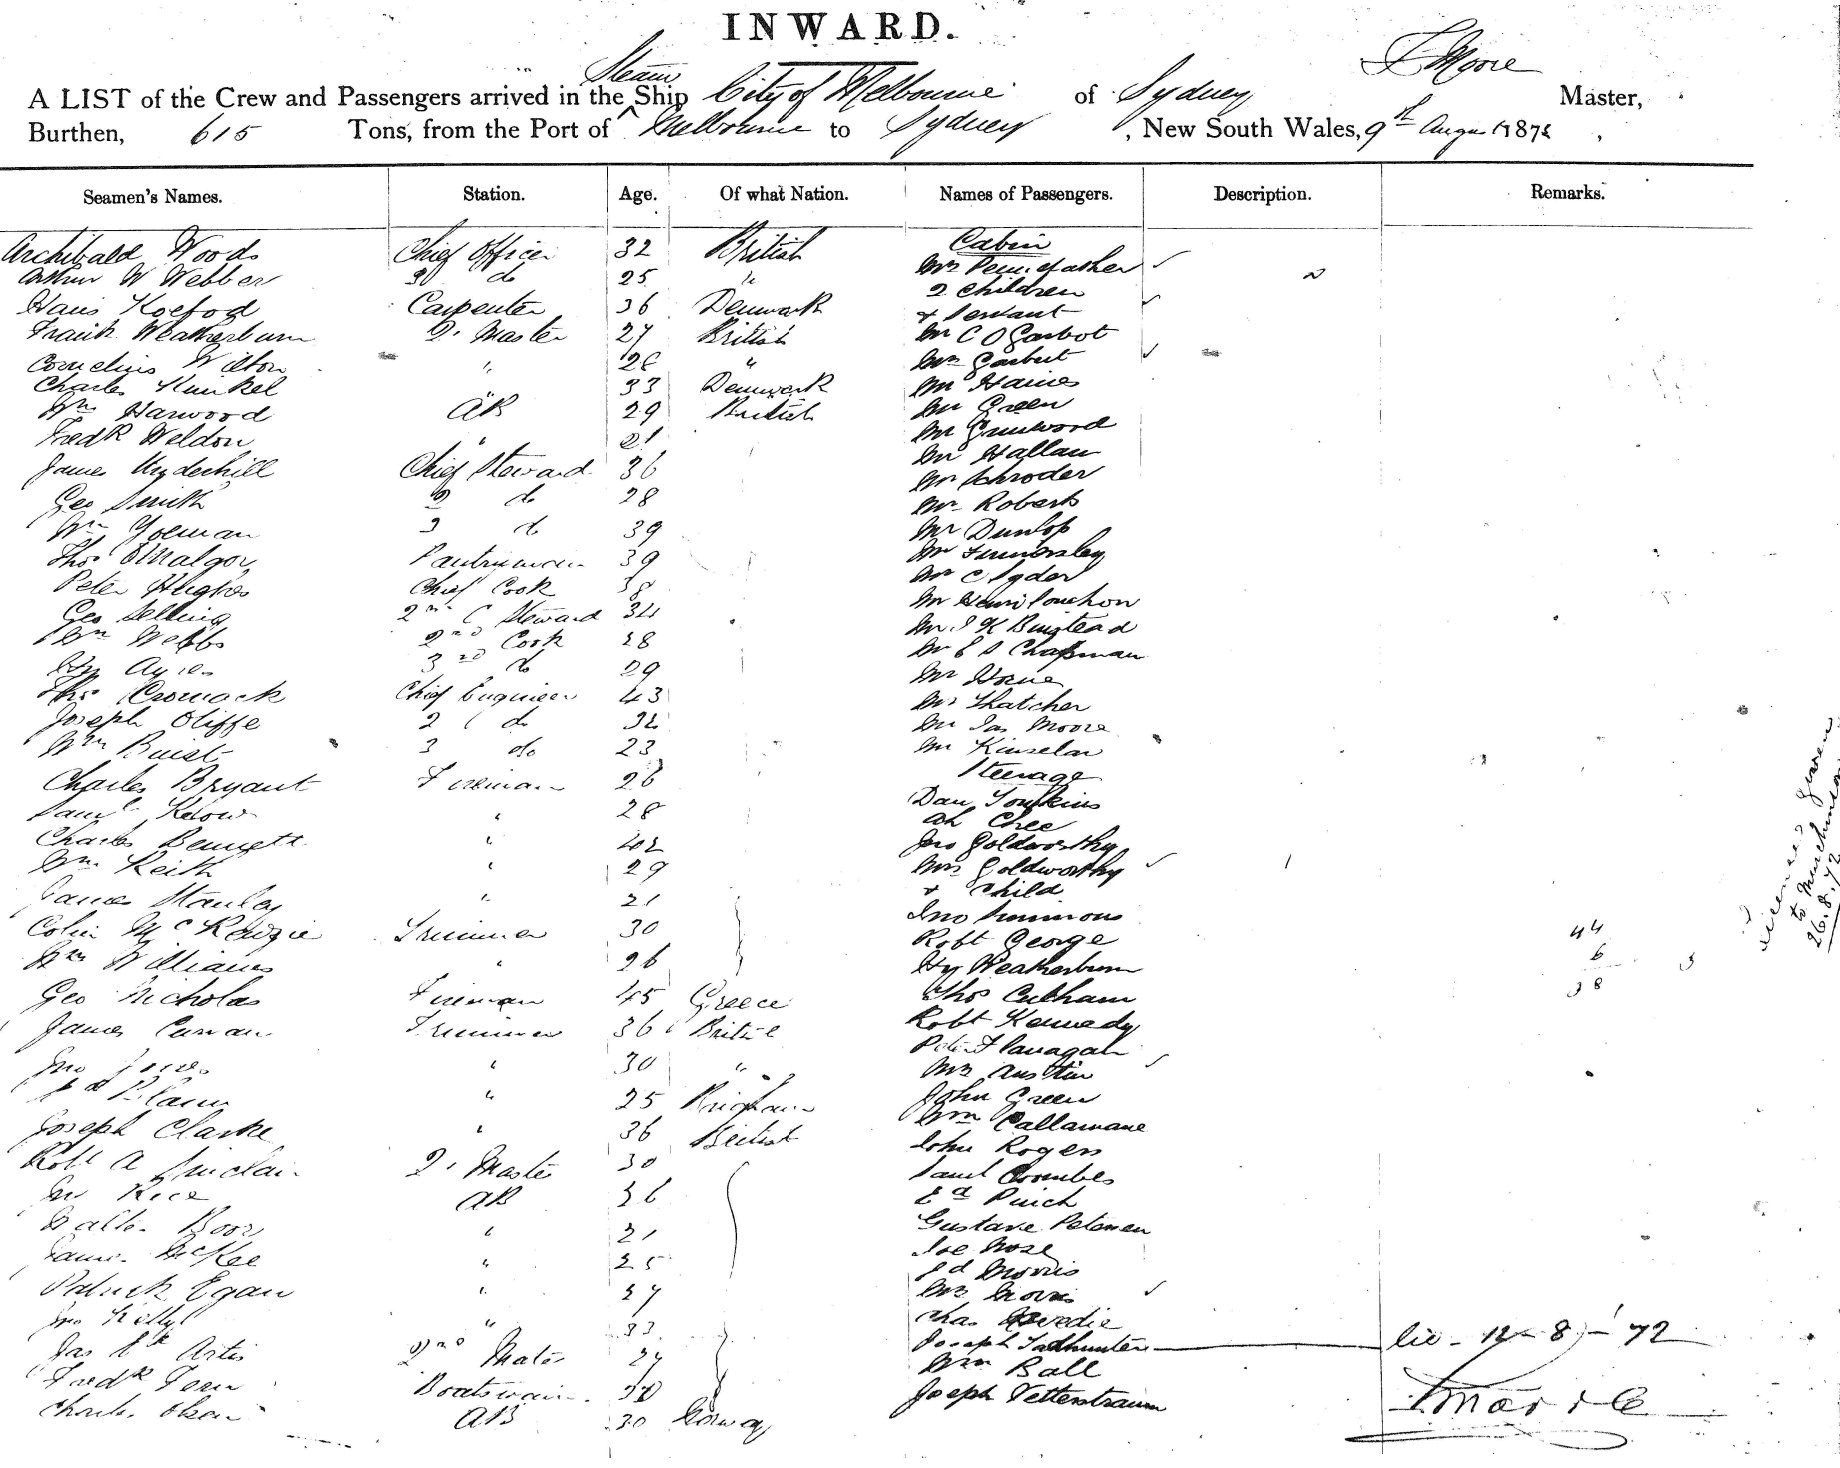 INWARD.
Steam
A LIST of the Crew and Passengers arrived in the Ship City of Melbourne of Sydney F Moore Master,
Burthen, 615 Tons, from the Port of Melbourne to Sydney, New South Wales, 9th August 1872
Seamen's Names. Station. Age. Of what Nation. Names of Passengers. Description. Remarks.
Archibald Woods Chief Officer 32 British Cabin
Arthur W Webber 2 do 25 " Mrs Pennefather
Hans Koefod Carpenter 36 Denmark 2 Children
Frank Weatherburn Q. Master 27 British & Servant
Cornelius Wilton " " Mr C O Garbot
Charles Kunkel " 33 Denmark Mrs Garbut
Wm Harwood AB 29 British Mr Haines
Fredk Weldon " 21 Mr Green
James Chief Steward 36 Mr Grunwood
Geo Smith 2 do 28 Mr Hallam
Wm Yoeman 3 do 39 Mr Schroder
Thos Pantryman 39 Mr Roberts
Peter Hughes Chief Cook 38 Mr Dunlop
Geo Selling 2nd C Steward 34 Mr
Wm Webbs 2nd Cook 28 Mr C
Wm Ayres 3rd do 29 Mr
Thos Cromack Chief Engineer 43 Mr J K Binstead
Joseph Oliffe 2 do 32 Mr E S Chapman
Wm Buist 3 do 23 Mr Horne
Charles Bryant Fireman 26 Mr Thatcher
Saml Kelow " 28 Mr Jas Moore
Charles Bennett " 42 Mr Kinselar
Wm Keith " 29 Steerage
James Stanley " 21 Dan Tonkins
Colin McKenzie Trimmer 30 Ah Chee
Wm Williams " 26 Jno Goldworthy
Geo Nicholas Fireman 45 Greece Mrs Goldworthy
James Curran Trimmer 36 British & Child
Jno Jones " 30 " Jno Simmons
" 25 Robt George
Joseph Clarke " 36 British Hy Weatherburn
Robt A Sinclair Q. Master 30 Thos Culham
Rice AB 36 Robt Kennedy
Walter Boor " 21 Flanagan
James McKee " 25 Mrs Austin
Patrick Egan " 27 John Green
Jno Kelly " 33 Wm Callamane
Jas Artis 2nd Mate 27 John Rogers
Fredk Boatswain Saml Coombes
Charles Olsen AB 30 Norway Ed Pinch
Gustave Petersen
Joe Rose
Ed Morris
Mrs Morris
Chas
Joseph Tadhunter lic - 12 - 8 - 72
Wm Ball
Joseph Vetterstraum
44
6
38
given
to Murchinson
26.8.72